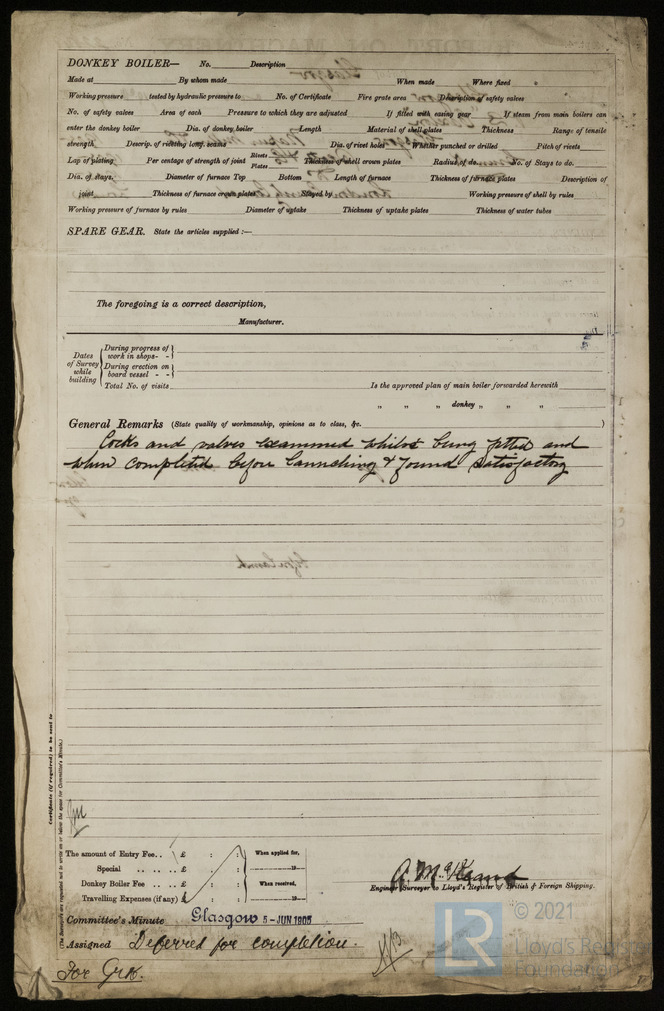 DONKEY BOILER— No. Description
Made at By whom made When made Where fixed
Working pressure tested by hydraulic pressure to No. of Certificate Fire grate area Description of safety valves
No. of safety valves Area of each Pressure to which they are adjusted If fitted with easing gear If steam from main boilers can
enter the donkey boiler Dia. of donkey boiler Length Material of shell plates Thickness Range of tensile
strength Descrip. of riveting long. seams Dia. of rivet holes Whether punched or drilled Pitch of rivets
Lap of plating Per centage of strength of joint Rivets Plates Thickness of shell crown plates Radius of do. No. of Stays to do.
Dia. of stays. Diameter of furnace Top Bottom Length of furnace Thickness of furnace plates Description of
joint Thickness of furnace crown plates Stayed by Working pressure of shell by rules
Working pressure of furnace by rules Diameter of uptake Thickness of uptake plates Thickness of water tubes
SPARE GEAR. State the articles supplied :—
The foregoing is a correct description,
Manufacturer.
Dates of Survey while building
During progress of work in shops - -
During erection on board vessel - -
Total No. of visits
Is the approved plan of main boiler forwarded herewith
" " donkey " " "
General Remarks (State quality of workmanship, opinions as to class, &c. )
Cocks and valves examined whilst being fitted and
when completed before launching & found satisfactory
Certificate (if required) to be sent to
(The Surveyors are requested not to write on or below the space for Committee's Minute.)
The amount of Entry Fee . . £ : : When applied for,
Special . . . . . . £ : : 19
Donkey Boiler Fee . . . . £ : : When received,
Travelling Expenses (if any) £ : : 19
Engineer Surveyor to Lloyd's Register of British & Foreign Shipping.
Committee's Minute Glasgow 5-JUN 1905
Assigned Deferred for completion.
For Grk.
LR
© 2021
Lloyd's Register
Foundation